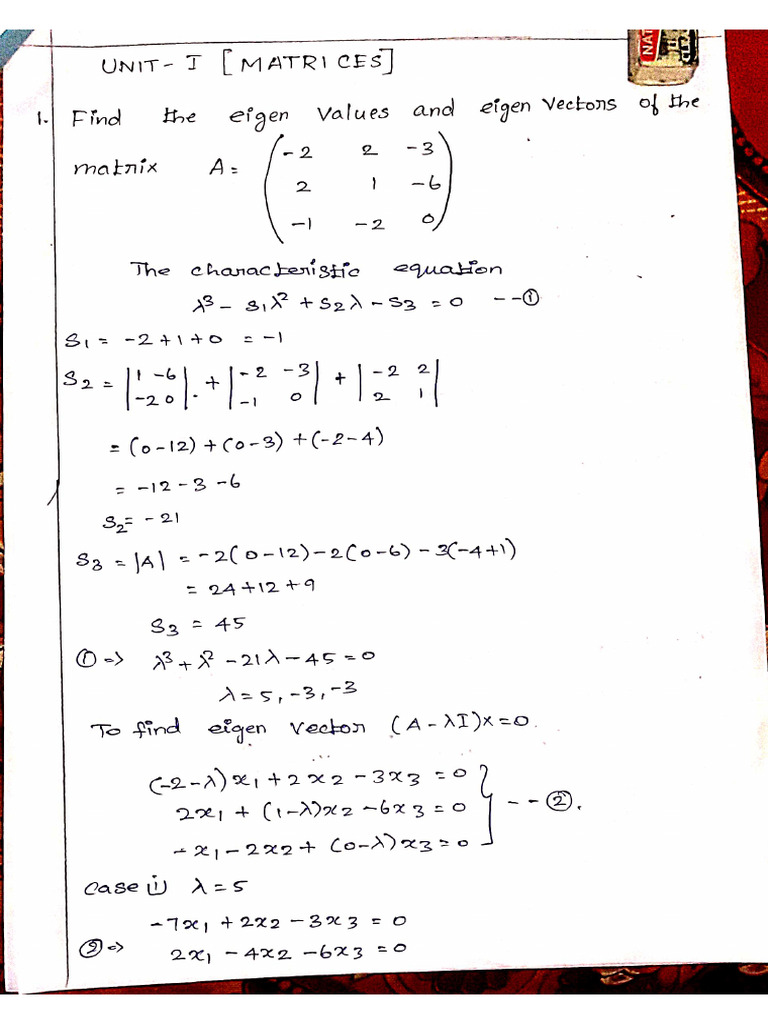 UNIT- I [MATRICES]
1. Find the eigen values and eigen vectors of the
matrix A = (-2 2 -3
2 1 -6
-1 -2 0)
The characteristic equation
λ³ - S₁λ² + S₂λ - S₃ = 0 --①
S₁ = -2+1+0 = -1
S₂ = |1 -6 -2 0| + |-2 -3 -1 0| + |-2 2 2 1|
= (0-12) + (0-3) + (-2-4)
= -12 - 3 - 6
S₂ = -21
S₃ = |A| = -2(0-12) - 2(0-6) - 3(-4+1)
= 24+12+9
S₃ = 45
① => λ³ + λ² - 21λ - 45 = 0
λ = 5, -3, -3
To find eigen vector (A - λI)x = 0.
(-2-λ)x₁ + 2x₂ - 3x₃ = 0
2x₁ + (1-λ)x₂ - 6x₃ = 0 } --②.
-x₁ - 2x₂ + (0-λ)x₃ = 0
Case i) λ = 5
-7x₁ + 2x₂ - 3x₃ = 0
② => 2x₁ - 4x₂ - 6x₃ = 0